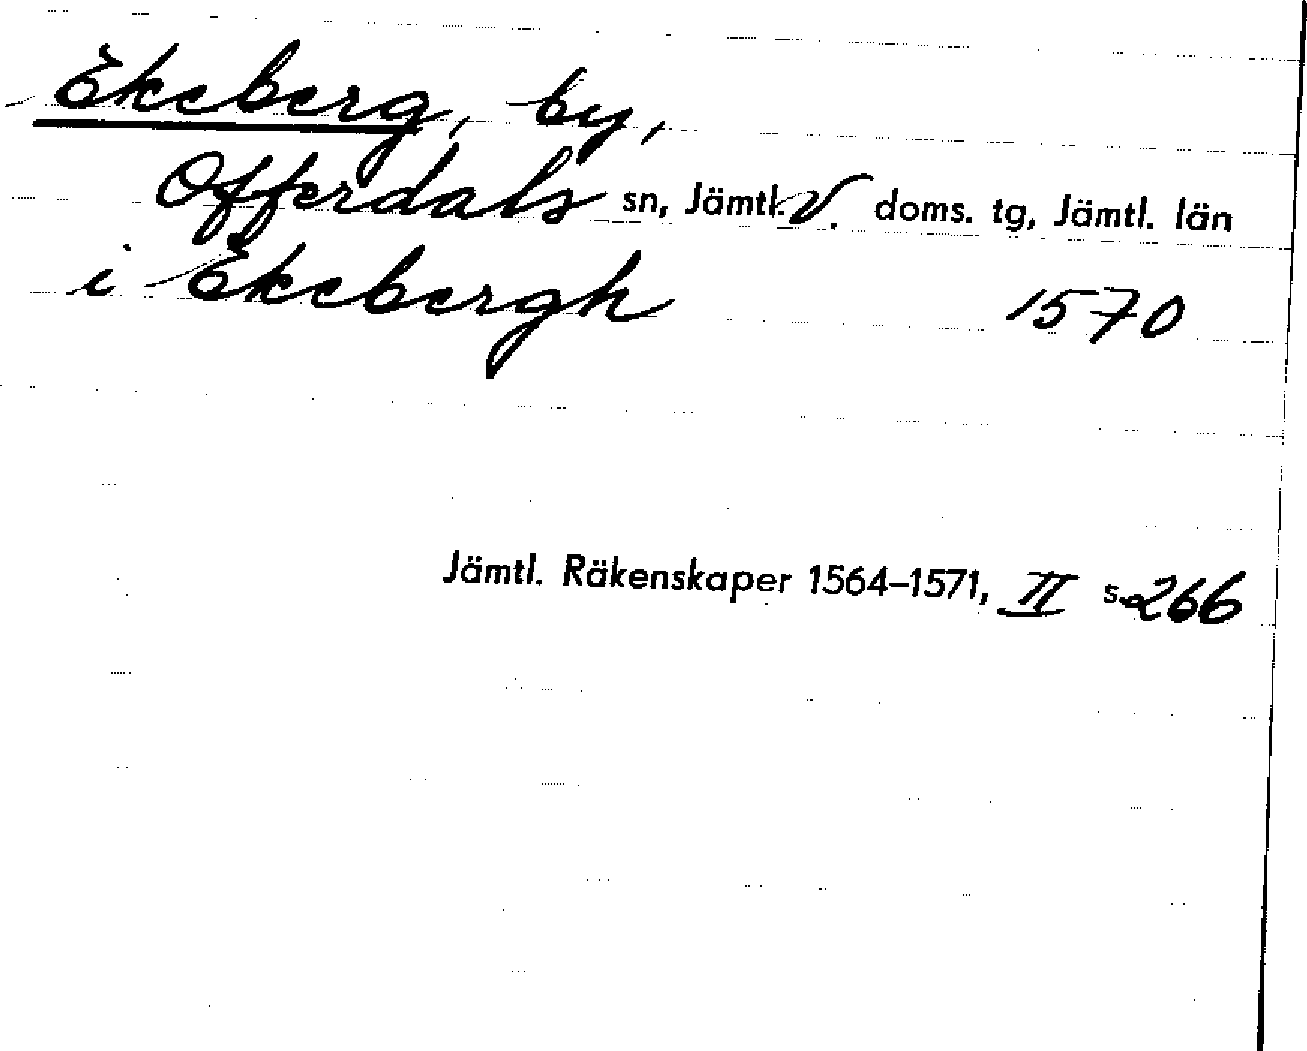 Ekeberg, by,
Offerdals sn, Jämtl. V. doms. tg, Jämtl. län
i Ekebergh 1570
Jämtl. Räkenskaper 1564–1571, II s. 266